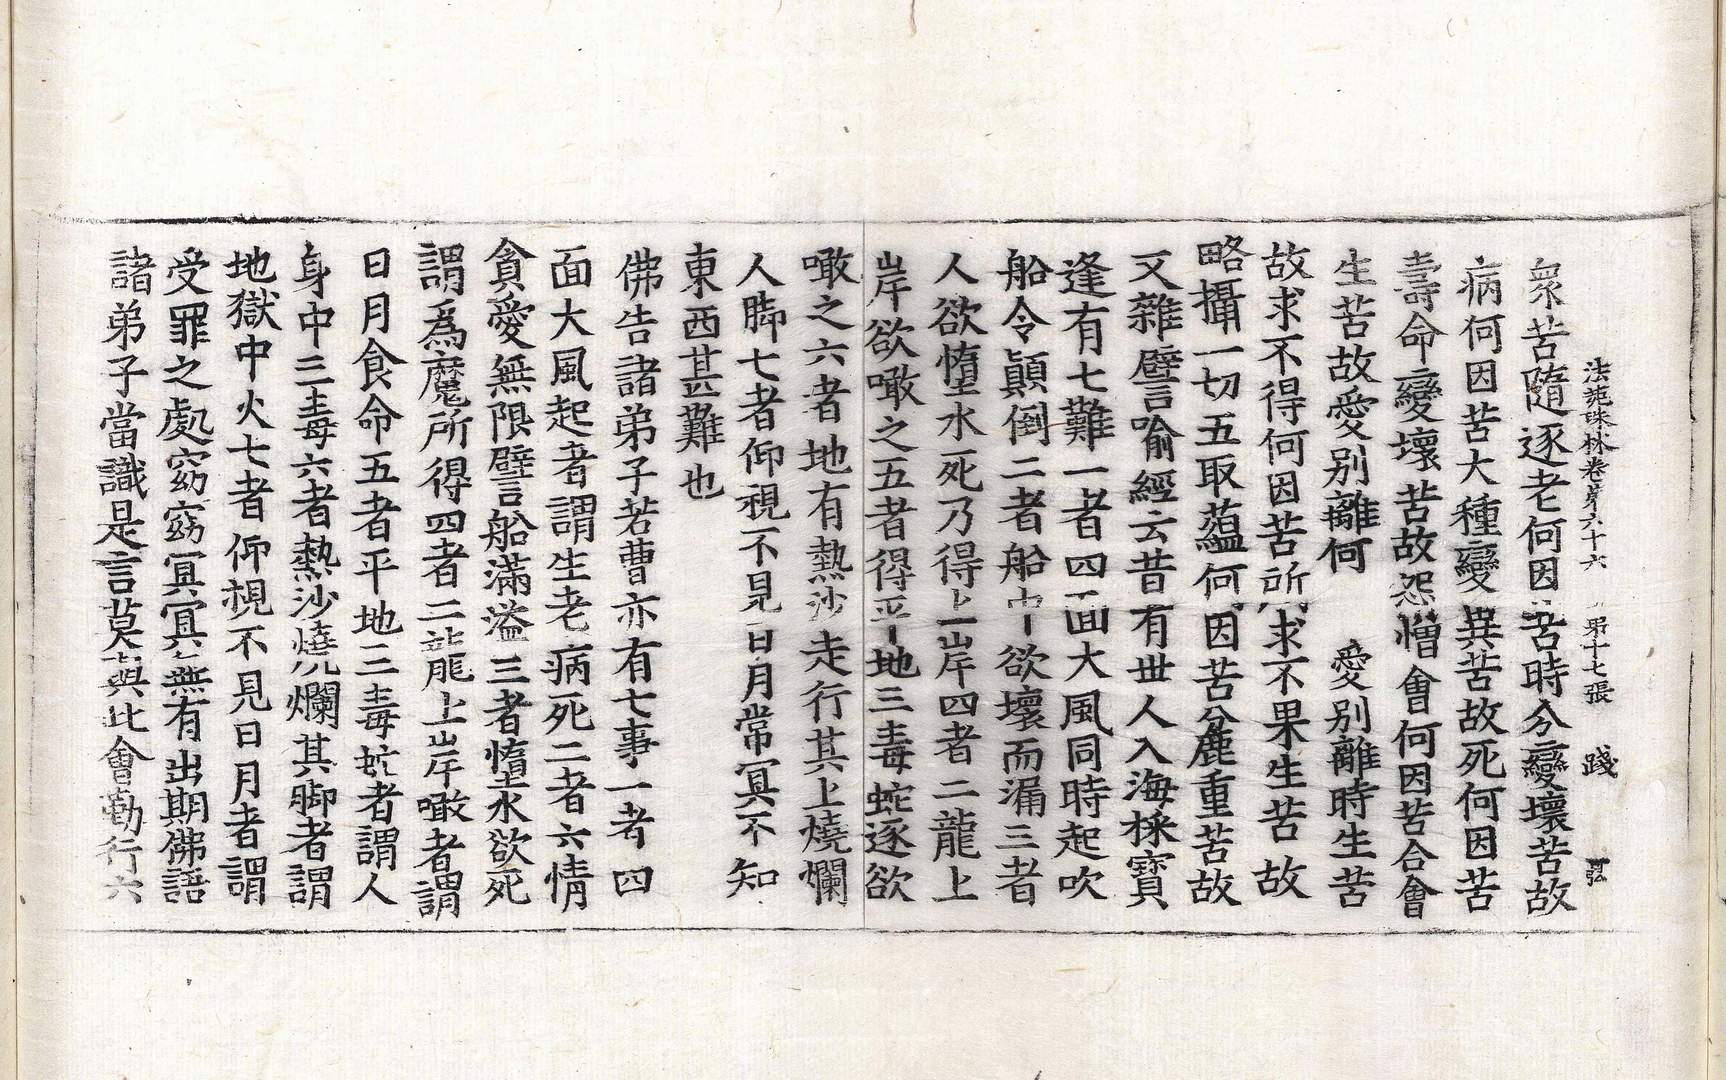 法苑珠林卷第六十六　第十七張　踐
衆苦隨逐老何因苦時分變壞苦故
病何因苦大種變異苦故死何因苦
壽命變壞苦故怨憎會何因苦合會
生苦故愛別離何　愛別離時生苦
故求不得何因苦所求不果生苦故
略攝一切五取蘊何因苦麁重苦故
又雜譬喻經云昔有丗人入海採寶
逢有七難一者四面大風同時起吹
船令顛倒二者船中欲壞而漏三者
人欲墮水死乃得上岸四者二龍上
岸欲噉之五者得平地三毒蛇逐欲
噉之六者地有熱沙走行其上燒爛
人脚七者仰視不見日月常冥不知
東西甚難也
佛告諸弟子若曹亦有七事一者四
面大風起者謂生老病死二者六情
貪愛無限譬船滿溢三者墮水欲死
謂爲魔所得四者二龍上岸噉者謂
日月食命五者平地三毒虵者謂人
身中三毒六者熱沙燒爛其脚者謂
地獄中火七者仰視不見日月者謂
受罪之處窈窈冥冥無有出期佛語
諸弟子當識是言莫與此會勤行六